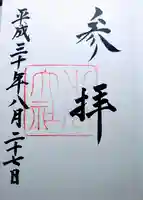 参拝
平成三十年八月二十七日